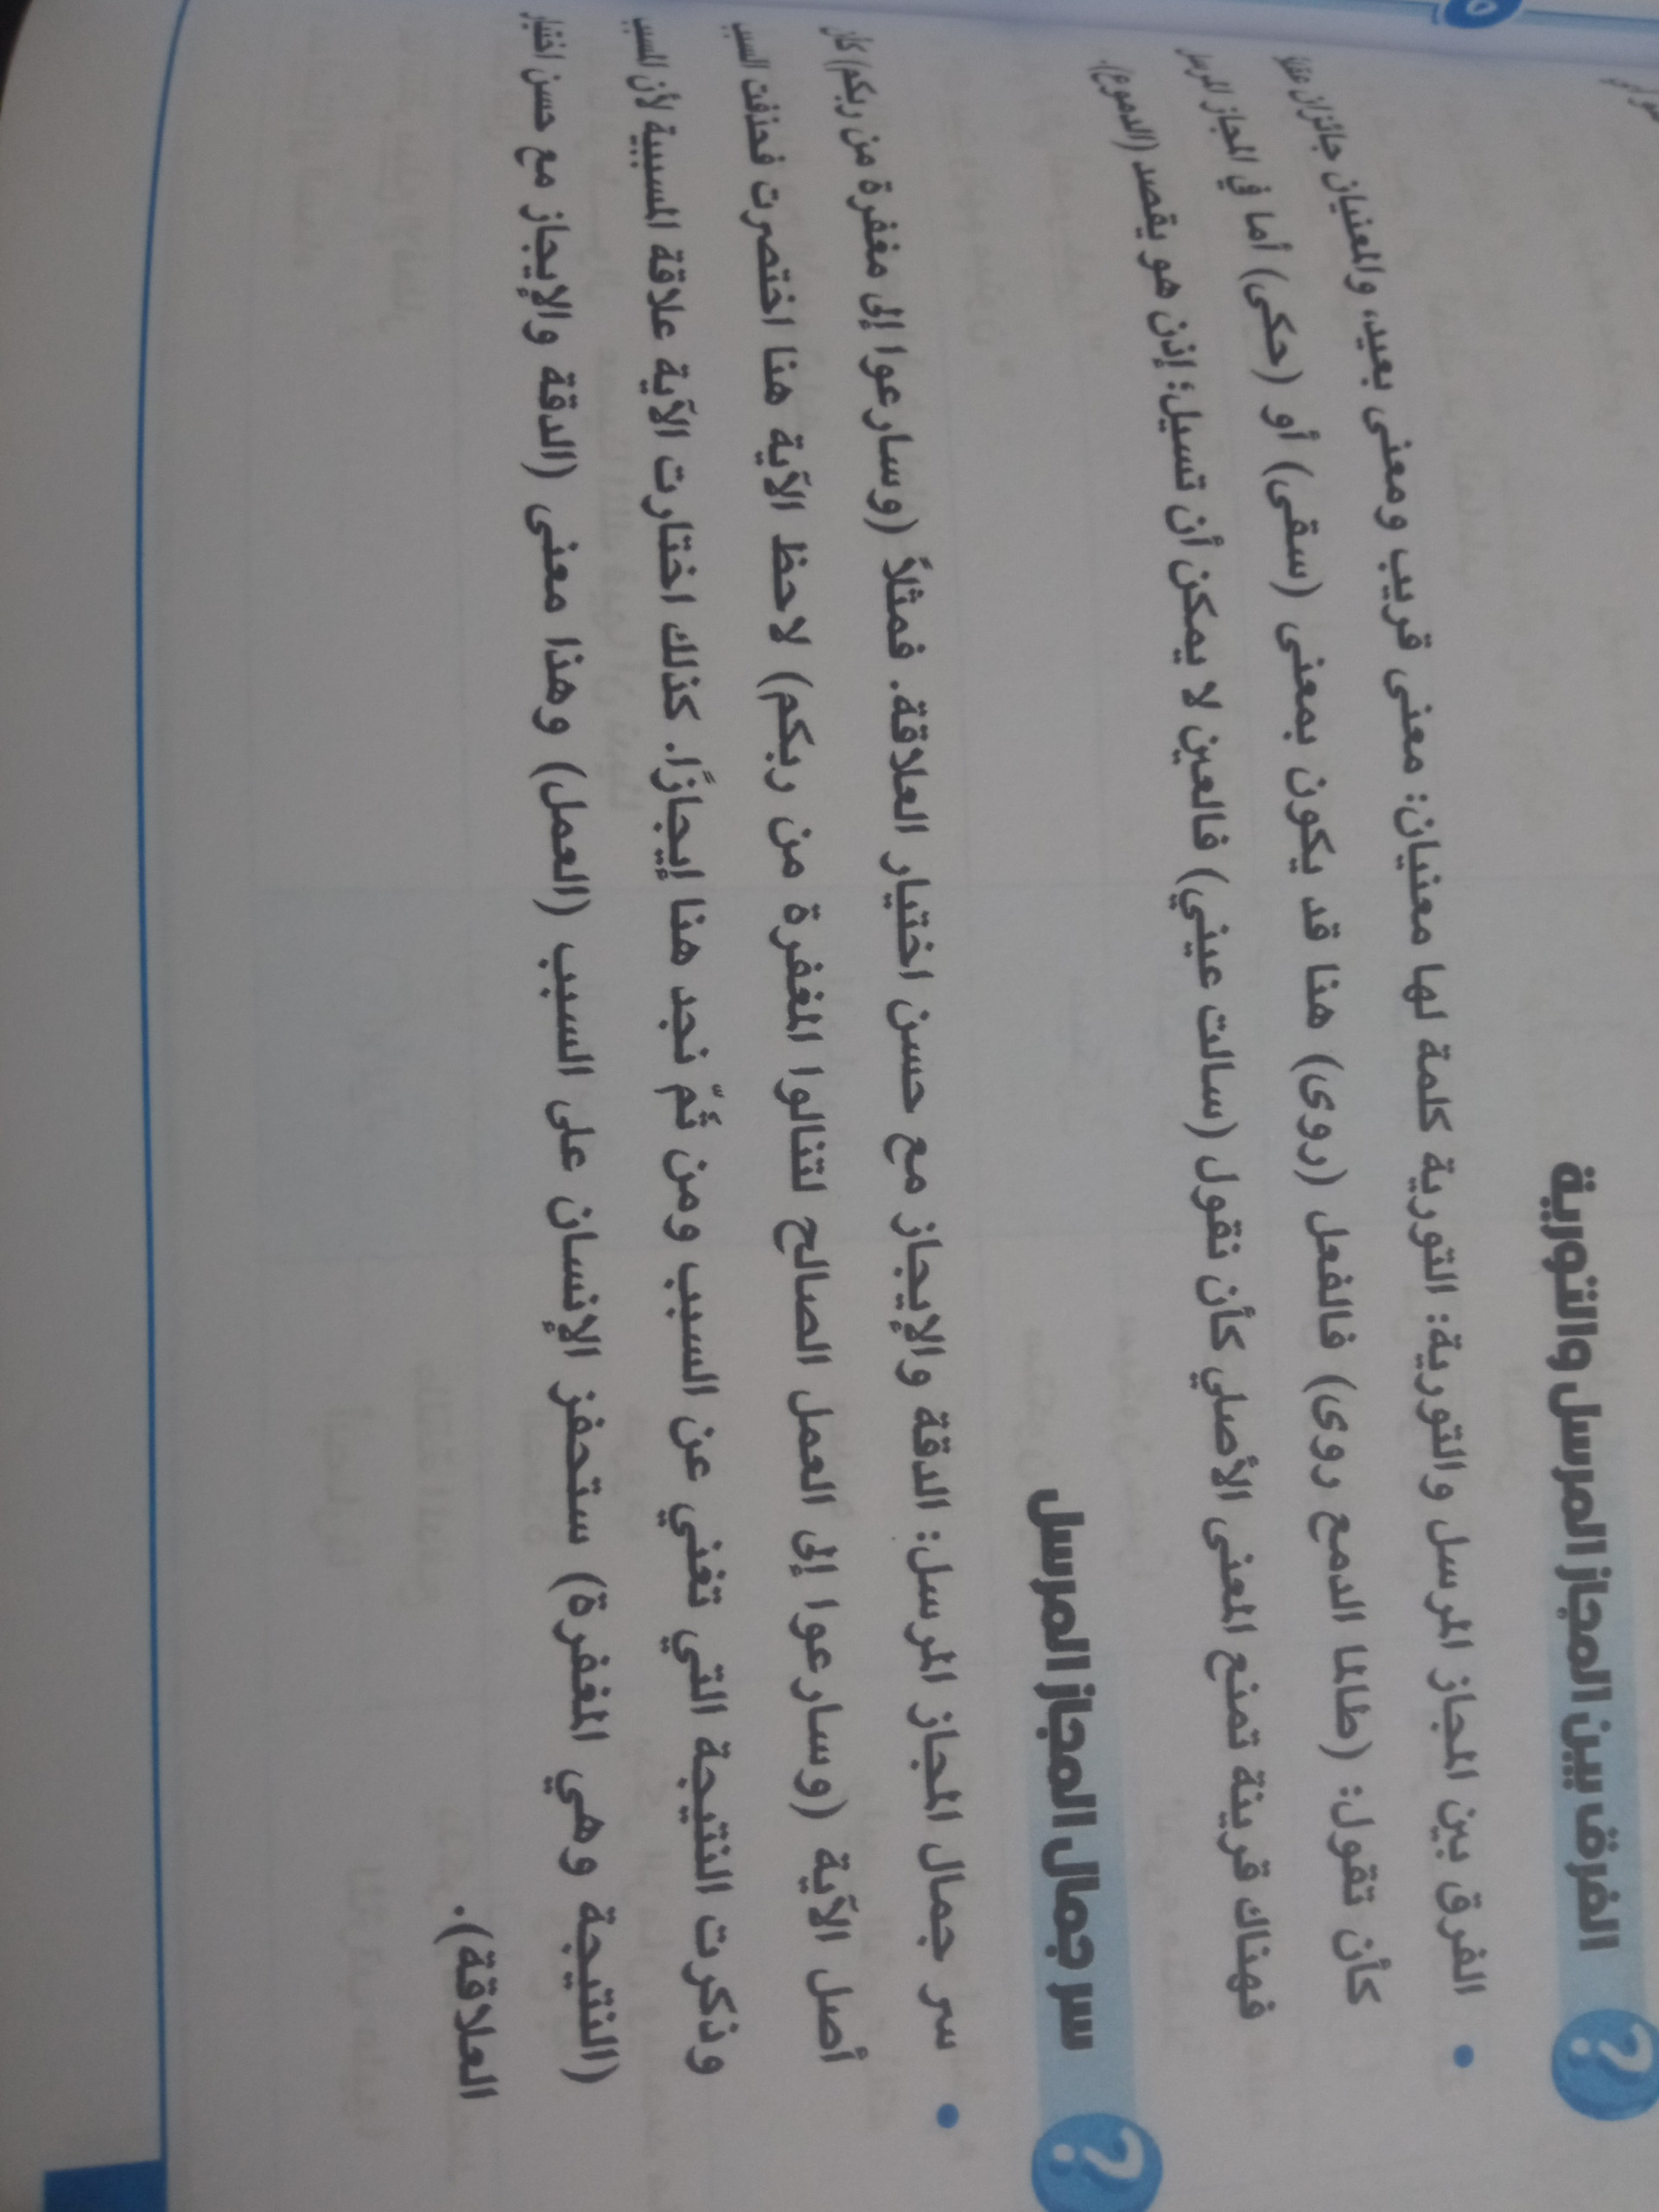 الفرق بين المجاز المرسل والتورية
• الفرق بين المجاز المرسل والتورية: التورية كلمة لها معنيان: معنى قريب ومعنى بعيد، والمعنيان جائزان
كأن تقول: (طالما الدمع روى) فالفعل (روى) هنا قد يكون بمعنى (سقى) أو (حكى) أما في المجاز المرسل
فهناك قرينة تمنع المعنى الأصلي كأن نقول (سالت عيني) فالعين لا يمكن أن تسيل؛ إذن هو يقصد (الدموع).
سر جمال المجاز المرسل
• سر جمال المجاز المرسل: الدقة والإيجاز مع حسن اختيار العلاقة. فمثلاً (وسارعوا إلى مغفرة من ربكم) كان
أصل الآية (وسارعوا إلى العمل الصالح لتنالوا المغفرة من ربكم) لاحظ الآية هنا اختصرت فحذفت السبب
وذكرت النتيجة التي تغني عن السبب ومن ثَمّ نجد هنا إيجازًا. كذلك اختارت الآية علاقة المسببية لأن المسبب
(النتيجة وهي المغفرة) ستحفز الإنسان على السبب (العمل) وهذا معنى (الدقة والإيجاز مع حسن اختيار
العلاقة).